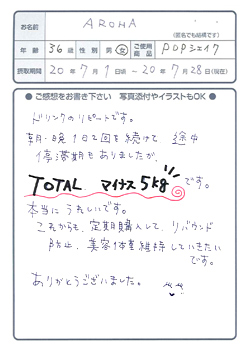 お名前 AROHA
(匿名でも結構です)
年齢 36歳 性別 男・女 ご使用商品 POPシェイク
摂取期間 20年7月1日頃〜20年7月28日(現在)
●ご感想をお書き下さい 写真添付やイラストもOK●
ドリンクのリピートです。
朝・晩1日2回を続けて 途中
停滞期もありましたが、
TOTAL マイナス5kgです。
本当にうれしいです。
これからも、定期購入して、リバウンド
防止、美容体重維持していきたい
です。
ありがとうございました。